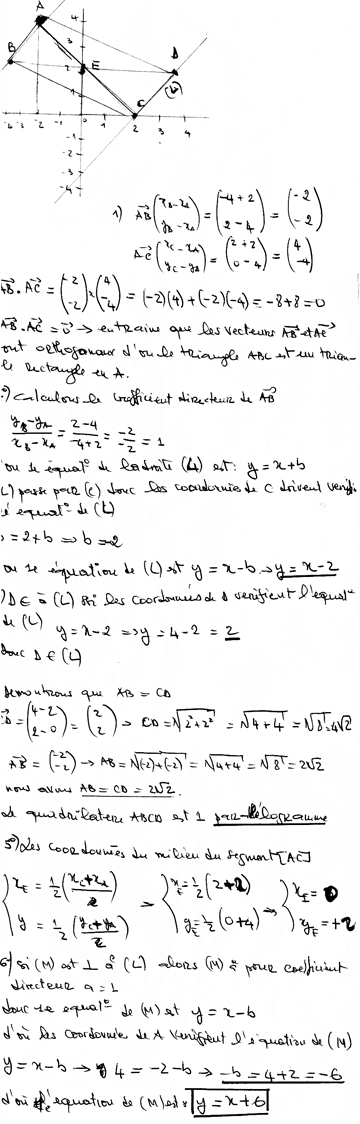 A
B
E
D
C
(L)
4
3
2
-1
-2
-3
-4
-4 -3 -2 0 1 2 3 4
1) AB (xB-xA / yB-yA) = (-4+2 / 2-4) = (-2 / -2)
AC (xC-xA / yC-yA) = (2+2 / 0-4) = (4 / -4)
AB . AC = (-2 / -2) x (4 / -4) = (-2)(4)+(-2)(-4) = -8+8 = 0
AB . AC = 0 → entraine que les vecteurs AB et AC
ont orthogonaux d'ou le triangle ABC est un trian-
le rectangle en A.
2°) Calculons le coefficient directeur de AB
yB-yA / xB-xA = 2-4 / -4+2 = -2 / -2 = 1
l'équat° de la droite (L) est : y = x+b
L) passe par (C) donc les coordonnées de C doivent verifi
l'équat° de (L)
= 2+b ⇒ b=-2
équation de (L) est y = x-b ⇒ y = x-2
) D ∈ à (L) ssi les coordonnées de D verifient l'équat°
de (L) y = x-2 ⇒ y = 4-2 = 2
donc D ∈ (L)
Demontrons que AB = CD
CD = (4-2 / 2-0) = (2 / 2) → CD = √2²+2² = √4+4 = √8 = 4√2
AB = (-2 / -2) → AB = √(-2)+(-2) = √4+4 = √8 = 2√2
nous avons AB = CD = 2√2.
Le quadrilatere ABCD est 1 parallélogramme
5°) Les coordonnées du milieu du segment [AC]
xE = 1/2 (xC+xA) ⇒ xE = 1/2 (2-2) ⇒ xE = 0
y = 1/2 (yC+yA) yE = 1/2 (0+4) yE = +2
6°) si (M) est ⊥ à (L) alors (M) a pour coefficient
directeur a = 1
donc l'équat° de (M) est y = x-b
d'où les coordonnées de A verifient l'équation de (M)
y = x-b → 4 = -2-b → -b = 4+2 = -6
d'où l'équation de (M) est y = x+6